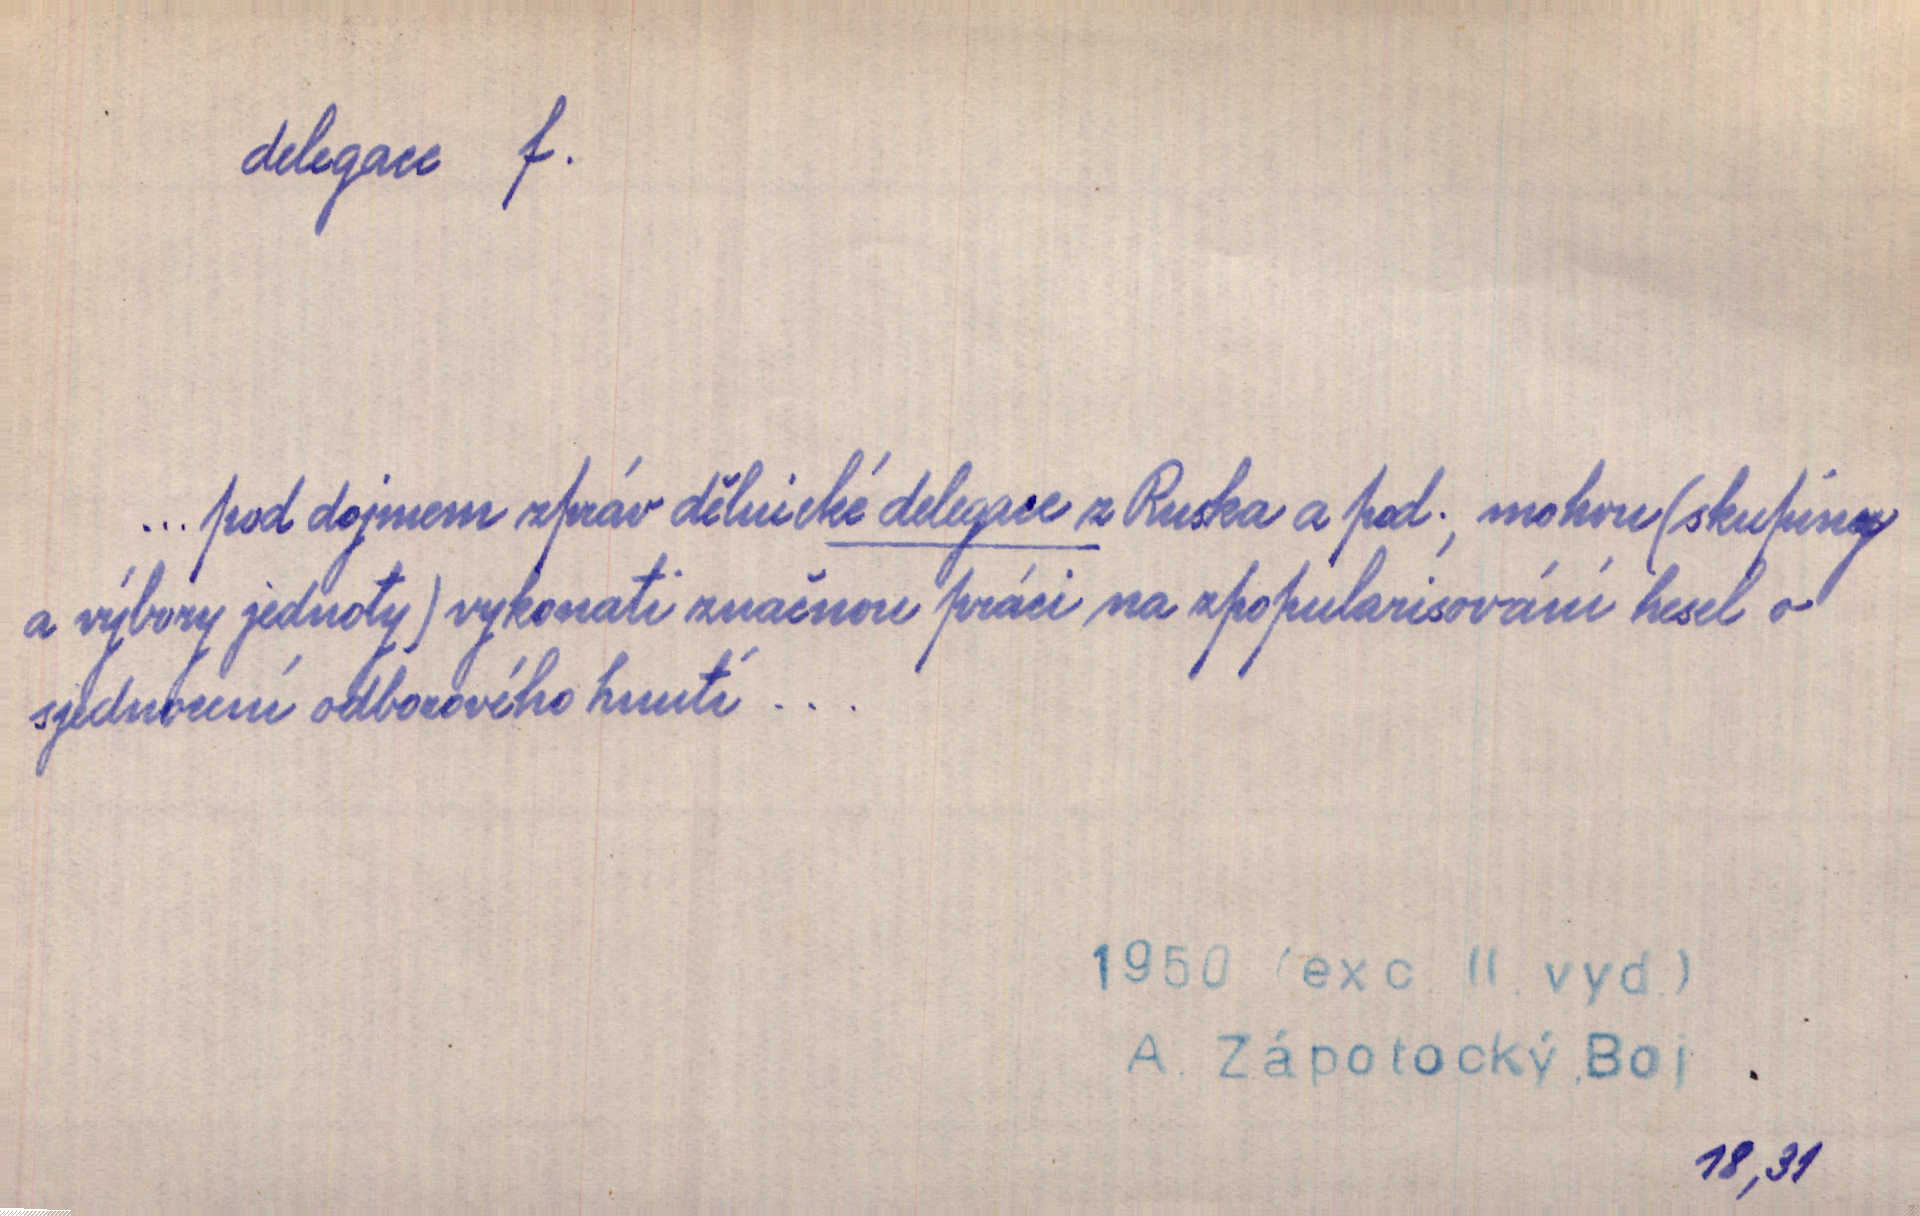 delegace f.
... pod dojmem zpráv dělnické delegace z Ruska a pod., mohou (skupiny
a výbory jednoty) vykonati značnou práci na zpopularisování hesel o
sjednocení odborového hnutí ...
1950 (exc. II. vyd.)
A. Zápotocký, Boj
18,31